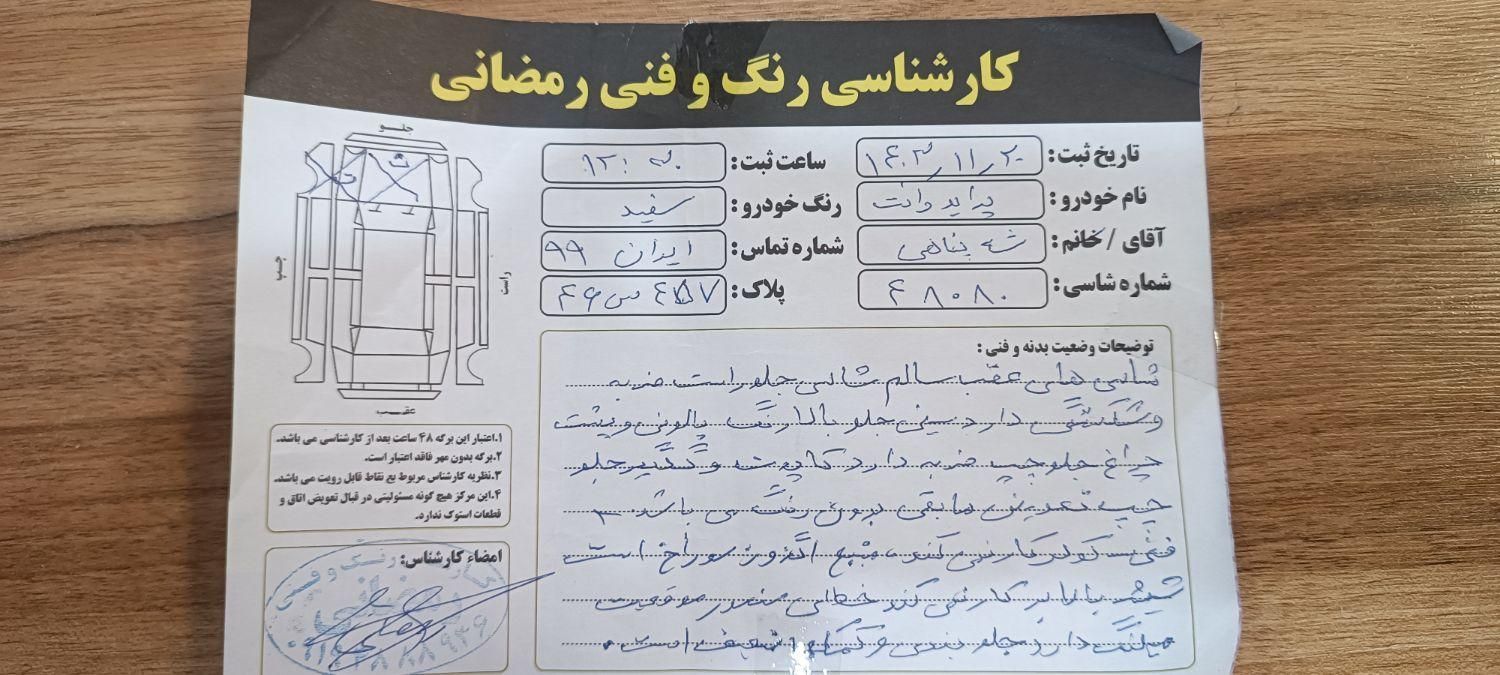 کارشناسی رنگ و فنی رمضانی
تاریخ ثبت: ۱۴۰۳/۱۱/۲۰
ساعت ثبت: ۱۲:۳۰
نام خودرو: پراید وانت
رنگ خودرو: سفید
آقای / خانم: شه پناهی
شماره تماس: ایران ۹۹
شماره شاسی: ۴۸۰۸۰
پلاک: ۴۵۷ س ۴۶
جلو
چپ
راست
عقب
توضیحات وضعیت بدنه و فنی:
شاسی های عقب سالم شاسی جلو راست ضربه
و شکستگی دارد سینی جلو بالا رنگ پالونی و پشت
چراغ جلو چپ ضربه دارد کاپوت و گلگیر جلو
چپ تعویض مابقی بدون رنگ می باشد.
فنی کولر کار نمی کند منبع اگزوز سوراخ است
شیشه بالابر کار نمی کند خطای سنسور موقعیت
میلنگ دارد جلو بندی و کمکها ضعیف است.
۱.اعتبار این برگه ۴۸ ساعت بعد از کارشناسی می باشد.
۲.برگه بدون مهر فاقد اعتبار است.
۳.نظریه کارشناس مربوط بع نقاط قابل رویت می باشد.
۴.این مرکز هیچ گونه مسئولیتی در قبال تعویض اتاق و
قطعات استوک ندارد.
امضاء کارشناس: